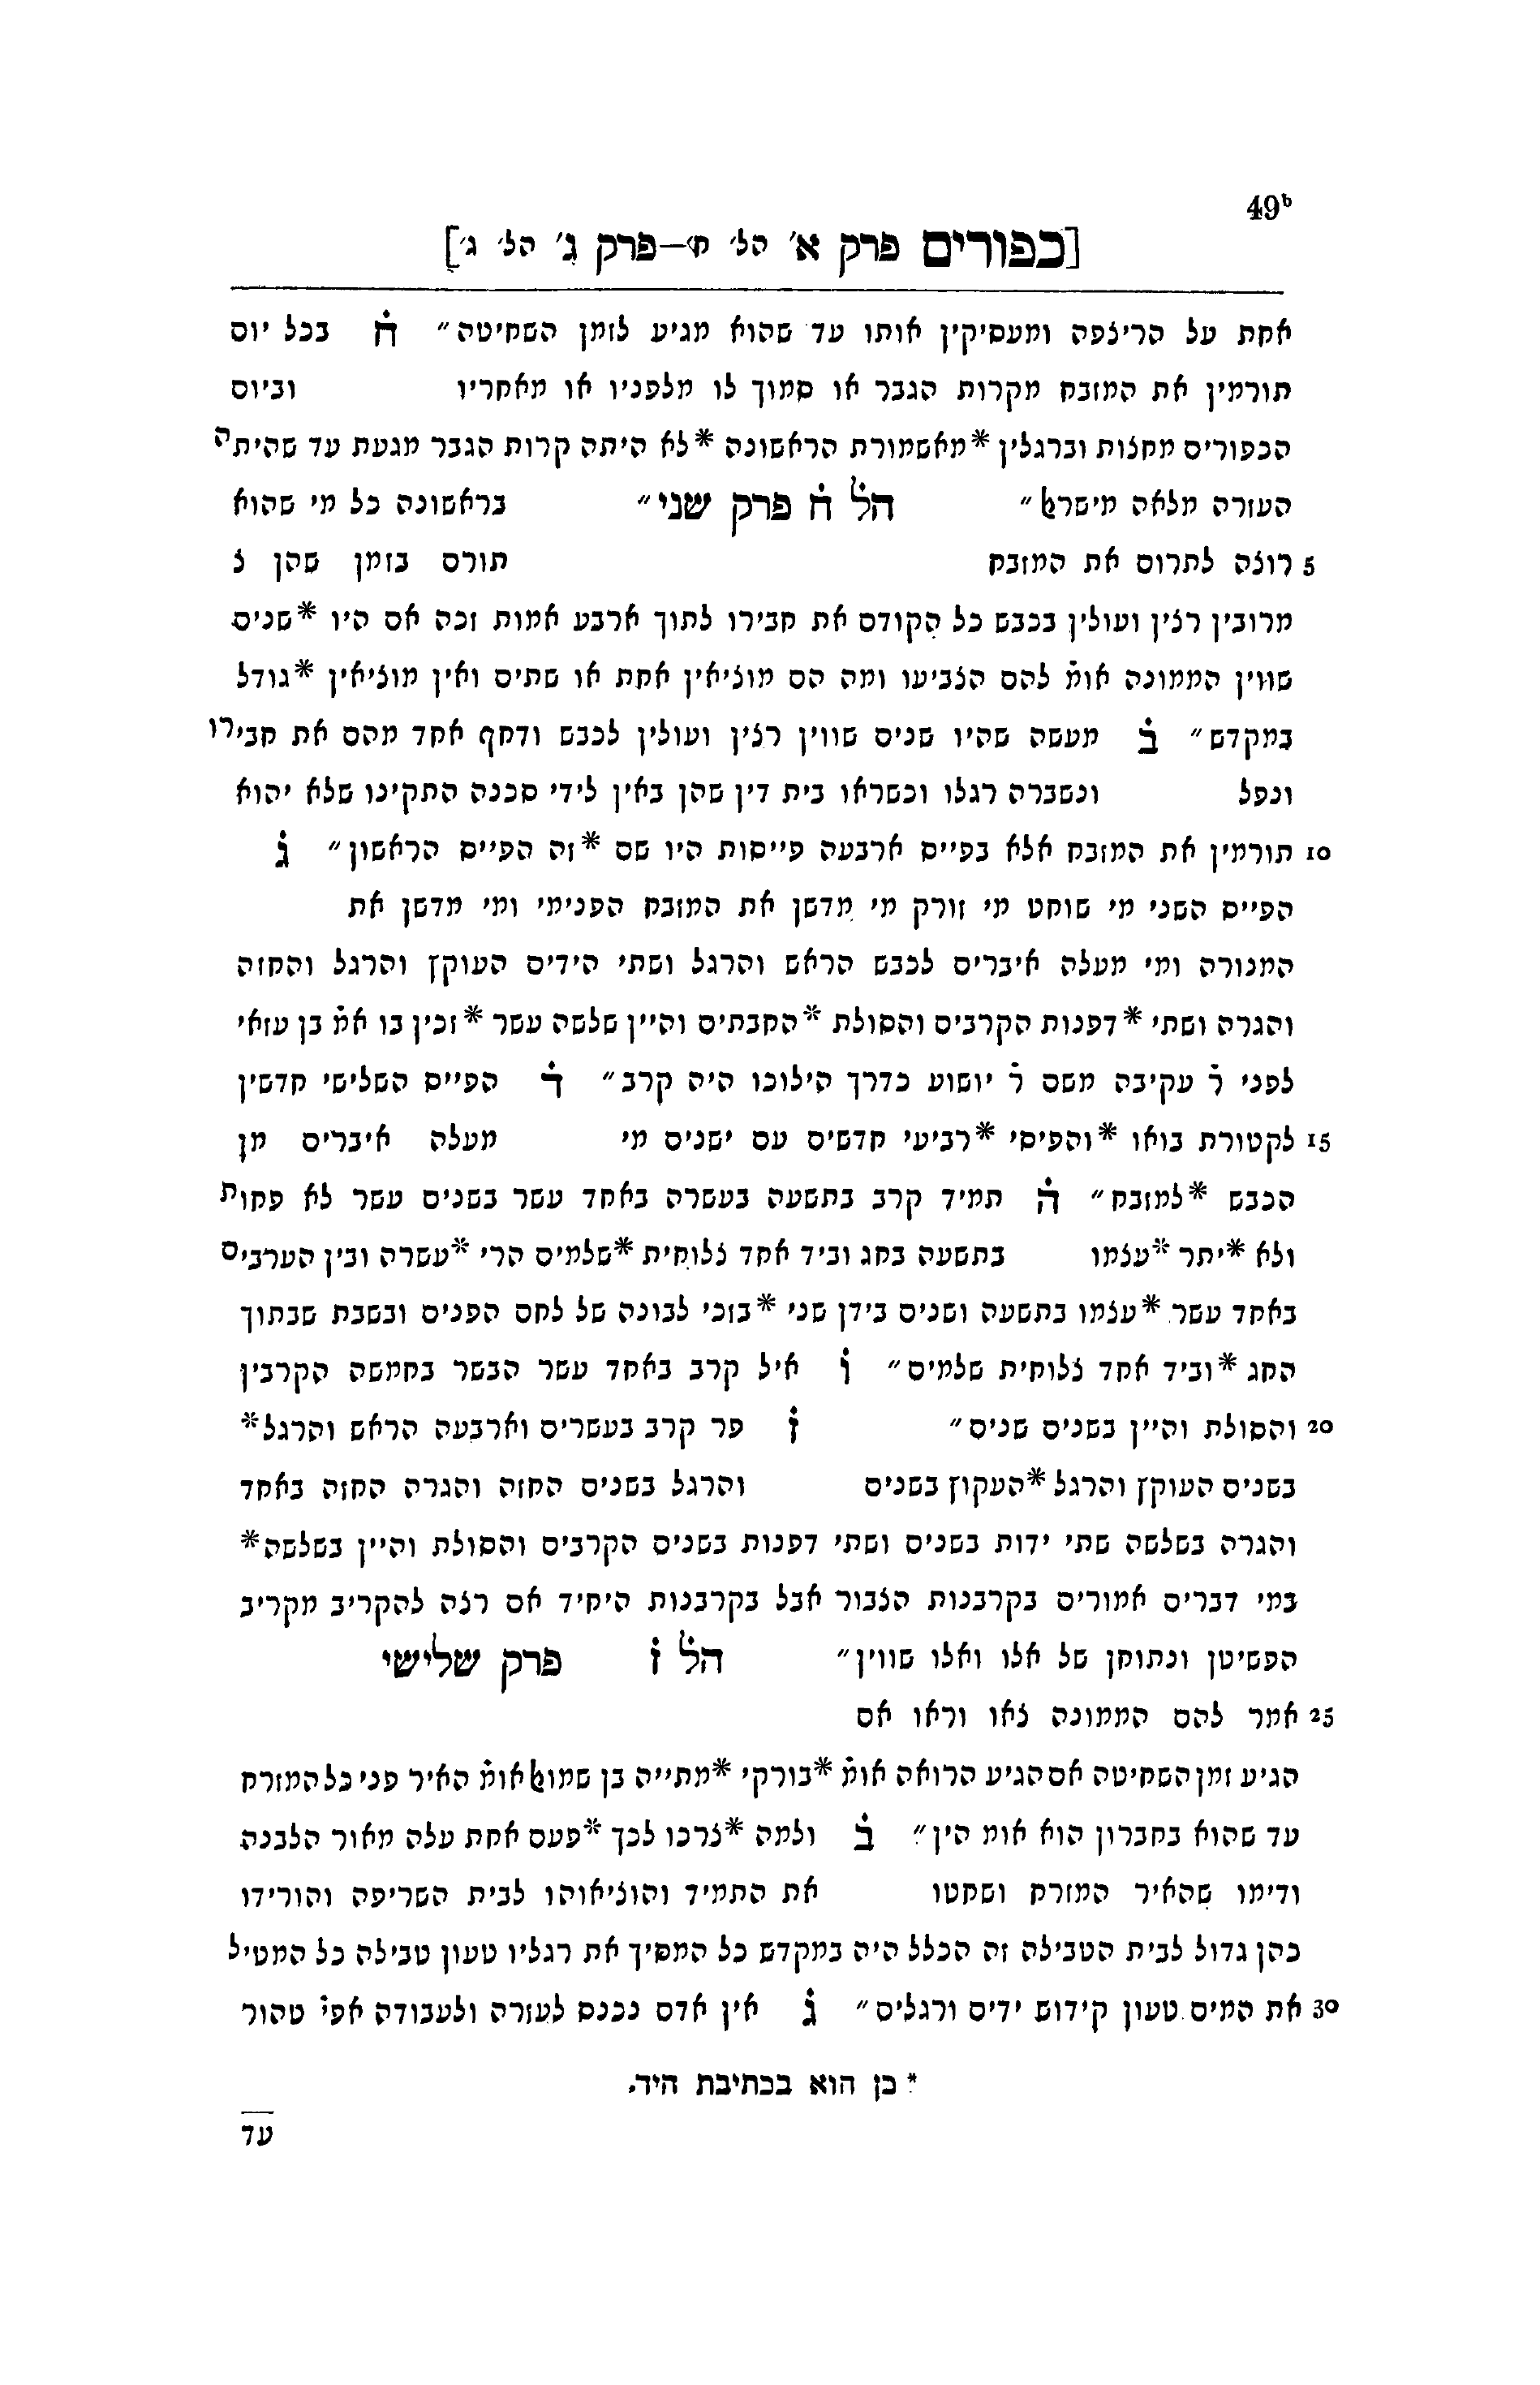 49b
[כפורים פרק א׳ הל׳ ח׳—פרק ג׳ הל׳ ג׳]
אחת על הריצפה ומעסיקין אותו עד שהוא מגיע לזמן השחיטה״ ח בכל יום
תורמין את המזבח מקרות הגבר או סמוך לו מלפניו או מאחריו וביום
הכפורים מחצות וברגלין *מאשמורת הראשונה *לא היתה קרות הגבר מגעת עד שהיתה
העזרה מלאה מישראל״ הל ח פרק שני״ בראשונה כל מי שהוא
5 רוצה לתרום את המזבח תורם בזמן שהן צ
מרובין רצין ועולין בכבש כל הקודם את חבירו לתוך ארבע אמות זכה אם היו *שנים
שווין הממונה אומ̇ להם הצביעו ומה הם מוציאין אחת או שתים ואין מוציאין *גודל
במקדש״ ב מעשה שהיו שנים שווין רצין ועולין לכבש ודחף אחד מהם את חבירו
ונפל ונשברה רגלו וכשראו בית דין שהן באין לידי סכנה התקינו שלא יהוא
10 תורמין את המזבח אלא בפייס ארבעה פייסות היו שם *זה הפייס הראשון״ ג
הפייס השני מי שוחט מי זורק מי מדשן את המזבח הפנימי ומי מדשן את
המנורה ומי מעלה איברים לכבש הראש והרגל ושתי הידים העוקץ והרגל והחזה
והגרה ושתי *דפנות הקרבים והסולת *החבתים והיין שלשה עשר *זכין בו אמ̇ בן עזאי
לפני ר̇ עקיבה משם ר̇ יושוע כדרך הילוכו היה קרב״ ד הפייס השלישי חדשין
15 לקטורת בואו *והפיסי *רביעי חדשים עם ישנים מי מעלה איברים מן
הכבש *למזבח״ ה תמיד קרב בתשעה בעשרה באחד עשר בשנים עשר לא פחות
ולא *יתר *עצמו בתשעה בחג וביד אחד צלוחית *שלמים הרי *עשרה ובין הערבים
באחד עשר *עצמו בתשעה ושנים בידן שני *בזכי לבונה של לחם הפנים ובשבת שבתוך
החג *וביד אחד צלוחית שלמים״ ו איל קרב באחד עשר הבשר בחמשה הקרבין
20 והסולת והיין בשנים שנים״ ז פר קרב בעשרים וארבעה הראש והרגל*
בשנים העוקץ והרגל *העקוץ בשנים והרגל בשנים החזה והגרה החזה באחד
והגרה בשלשה שתי ידות בשנים ושתי דפנות בשנים הקרבים והסולת והיין בשלשה*
במי דברים אמורים בקרבנות הצבור אבל בקרבנות היחיד אם רצה להקריב מקריב
הפשיטן ונתוחן של אלו ואלו שווין״ הל ז פרק שלישי
25 אמר להם הממונה צאו וראו אם
הגיע זמן השחיטה אם הגיע הרואה אומ̇ *בורקי *מתייה בן שמואל אומ̇ האיר פני כל המזרח
עד שהוא בחברון הוא אומ הין״ ב ולמה *צרכו לכך *פעם אחת עלה מאור הלבנה
ודימו שהאיר המזרח ושחטו את התמיד והוציאוהו לבית השריפה והורידו
כהן גדול לבית הטבילה זה הכלל היה במקדש כל המסיך את רגליו טעון טבילה כל המטיל
30 את המים טעון קידוש ידים ורגלים״ ג אין אדם נכנס לעזרה ולעבודה אפי̇ טהור
* כן הוא בכתיבת היד.
עד